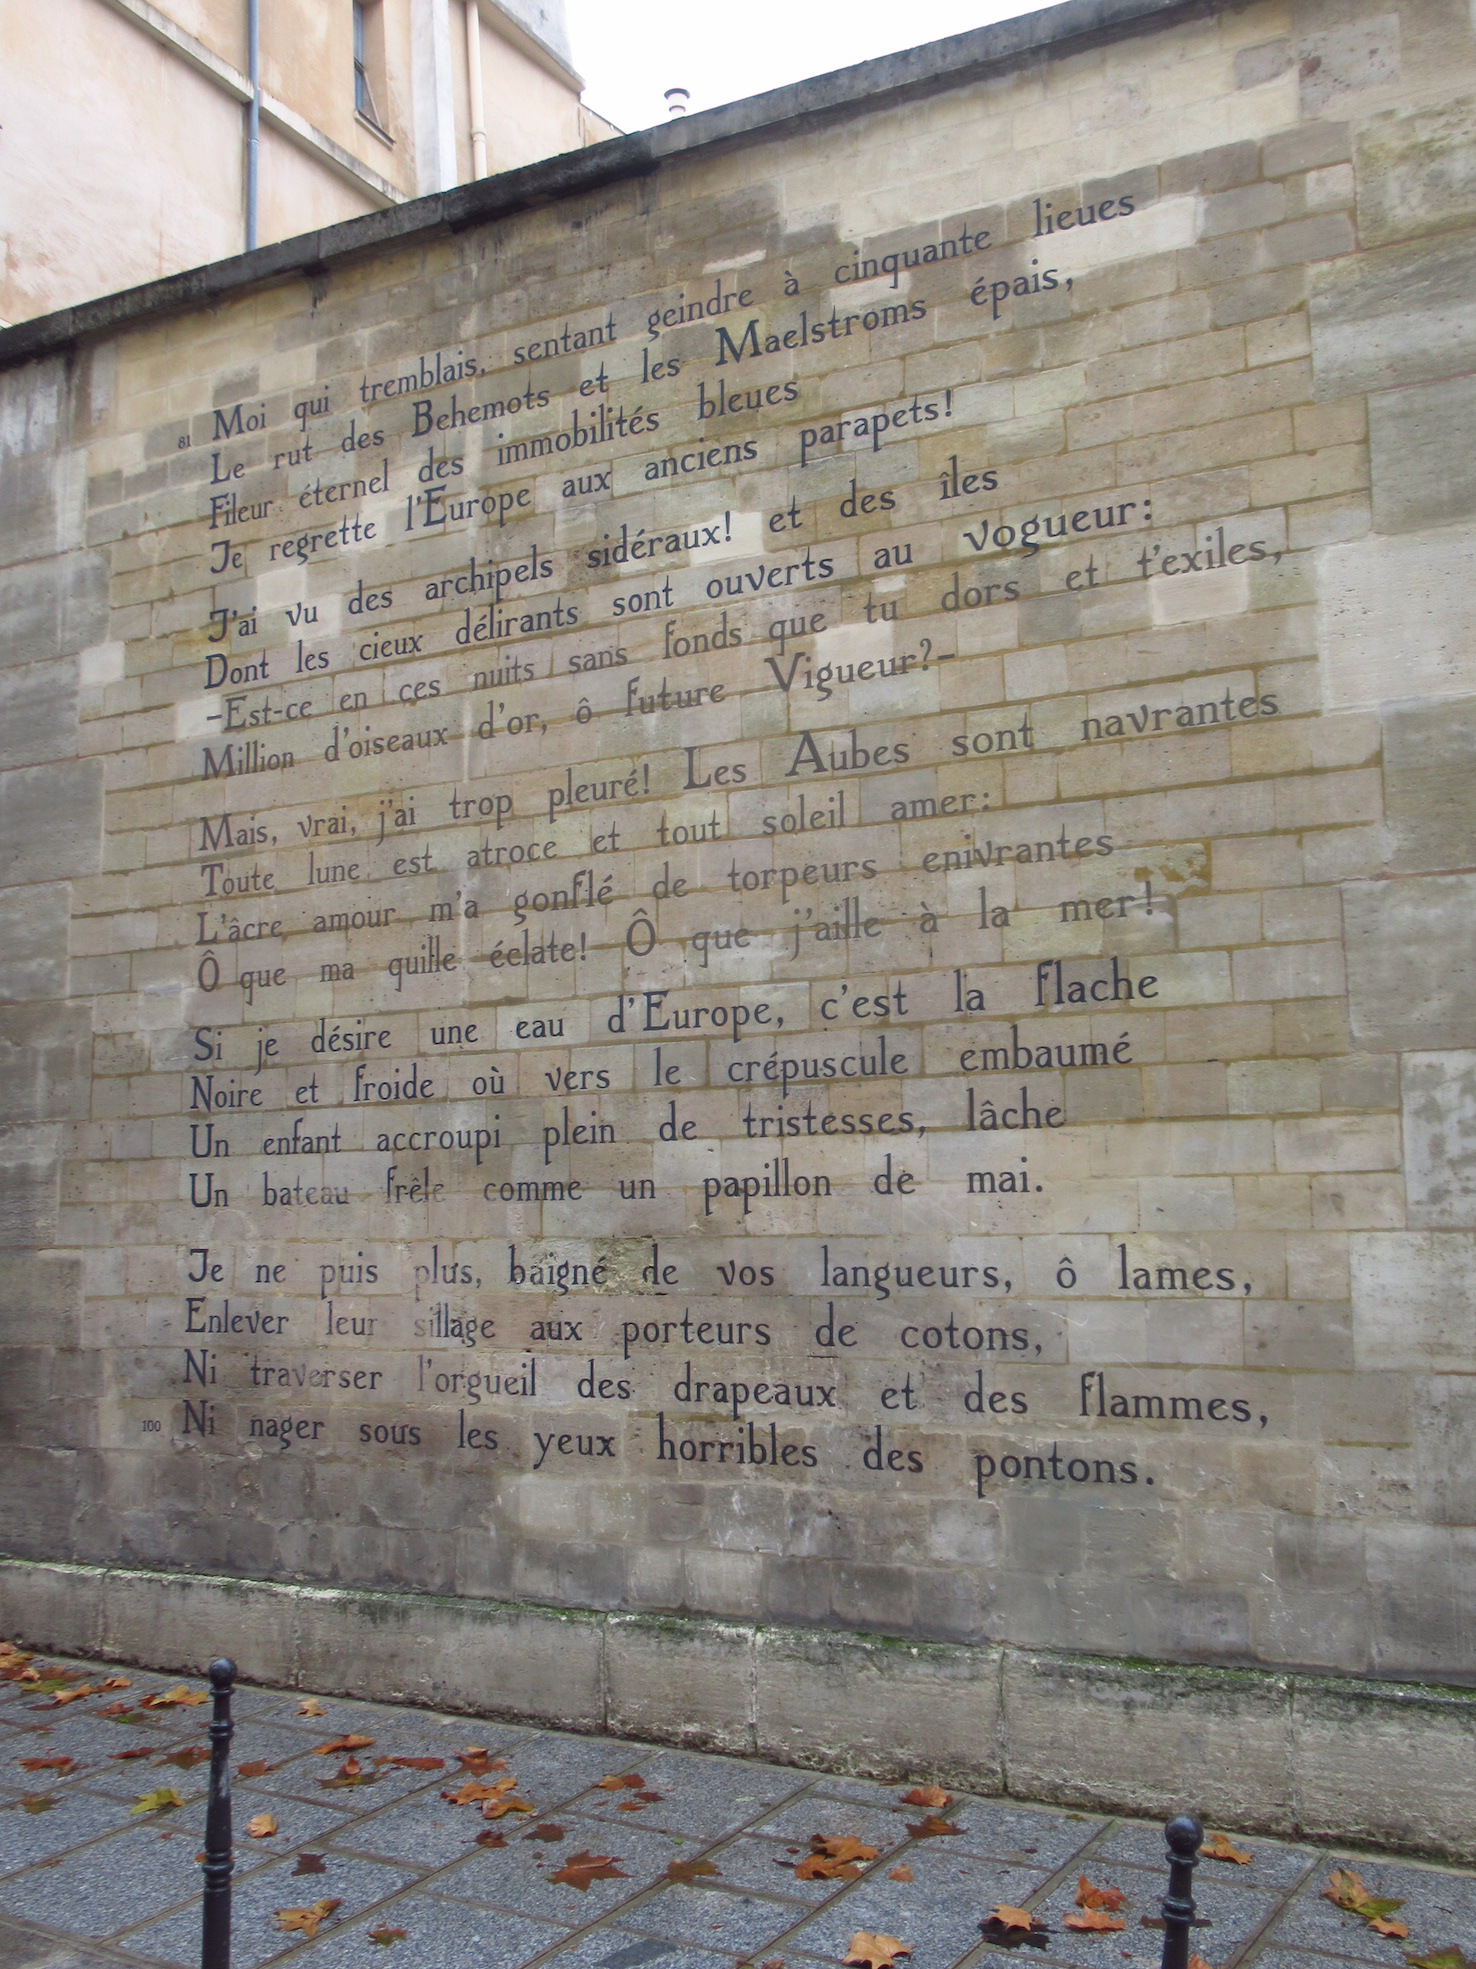 81 Moi qui tremblais, sentant geindre à cinquante lieues
Le rut des Behemots et les Maelstroms épais,
Fileur éternel des immobilités bleues
Je regrette l'Europe aux anciens parapets!
J'ai vu des archipels sidéraux! et des îles
Dont les cieux délirants sont ouverts au vogueur:
-Est-ce en ces nuits sans fonds que tu dors et t'exiles,
Million d'oiseaux d'or, ô future Vigueur?-
Mais, vrai, j'ai trop pleuré! Les Aubes sont navrantes
Toute lune est atroce et tout soleil amer:
L'âcre amour m'a gonflé de torpeurs enivrantes
Ô que ma quille éclate! Ô que j'aille à la mer!
Si je désire une eau d'Europe, c'est la flache
Noire et froide où vers le crépuscule embaumé
Un enfant accroupi plein de tristesses, lâche
Un bateau frêle comme un papillon de mai.
Je ne puis plus, baigné de vos langueurs, ô lames,
Enlever leur sillage aux porteurs de cotons,
Ni traverser l'orgueil des drapeaux et des flammes,
100 Ni nager sous les yeux horribles des pontons.